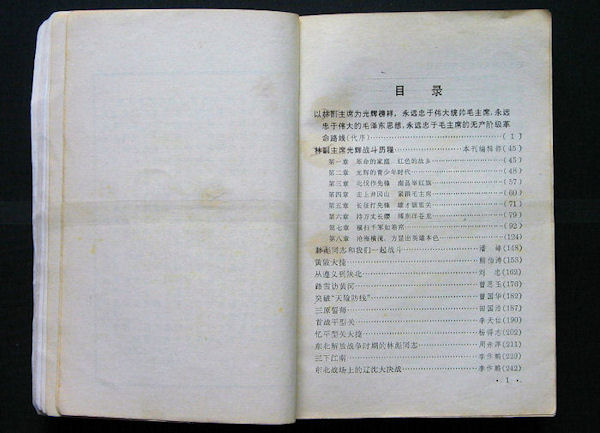 目录
以林副主席为光辉榜样，永远忠于伟大统帅毛主席，永远
忠于伟大的毛泽东思想，永远忠于毛主席的无产阶级革
命路线(代序)……(1)
林副主席光辉战斗历程……本刊编辑部(45)
第一章 革命的家庭 红色的故乡……(45)
第二章 光辉的青少年时代……(48)
第三章 北伐作先锋 南昌举红旗……(57)
第四章 走上井冈山 紧跟毛主席……(60)
第五章 长征打先锋 雄才镇重关……(71)
第六章 持万丈长缨 缚东洋苍龙……(79)
第七章 横扫千军如卷席……(92)
第八章 沧海横流，方显出英雄本色……(124)
林彪同志和我们一起战斗……潘峰(148)
黄陂大捷……熊伯涛(153)
从遵义到陕北……刘忠(162)
踏雪访黄河……曾思玉(176)
突破“天险防线”……曾国华(182)
三原誓师……田国浩(187)
首战平型关……李天佑(190)
忆平型关大捷……杨得志(202)
东北解放战争时期的林彪同志……周赤萍(211)
三下江南……李作鹏(229)
东北战场上的辽沈大决战……李作鹏(242)
·1·